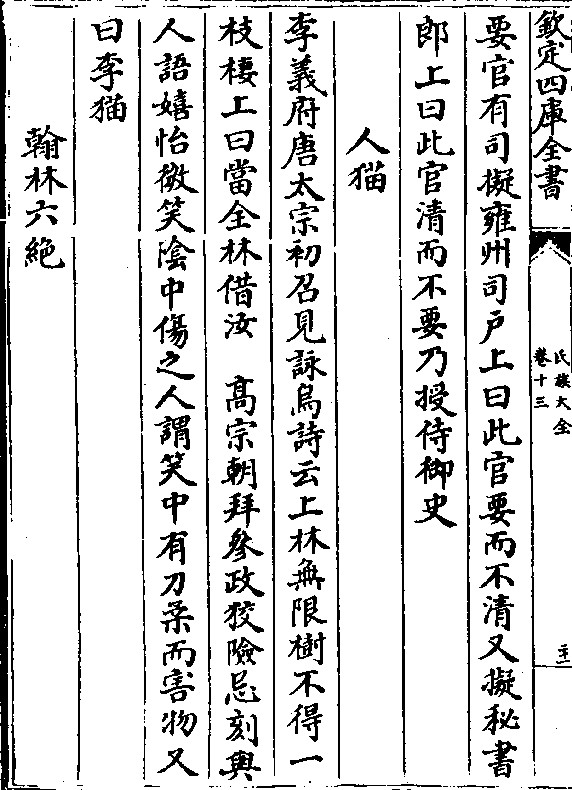 欽定四庫全書
氏族大全
卷十三
要官有司擬雍州司戶上曰此官要而不清又擬秘書
郎上曰此官清而不要乃授侍御史
人猫
李義府唐太宗初召見詠烏詩云上林無限樹不得一
枝棲上曰當全林借汝　高宗朝拜參政狡險忌刻與
人語嬉怡微笑陰中傷之人謂笑中有刀柔而害物又
曰李猫
翰林六絕